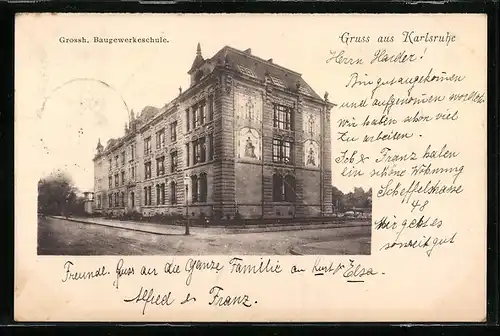 Grossh. Baugewerkeschule.
Gruss aus Karlsruhe
Herrn Harder!
Bin gut angekommen
und aufgenommen worden
Wir haben schon viel
zu arbeiten.
Ich & Franz haben
ein schöne Wohnung
Scheffelstrasse
48
Mir geht es
sonst gut
Freundl. Gruss an die Ganze Familie an Kurt & Elsa.
Alfred & Franz.